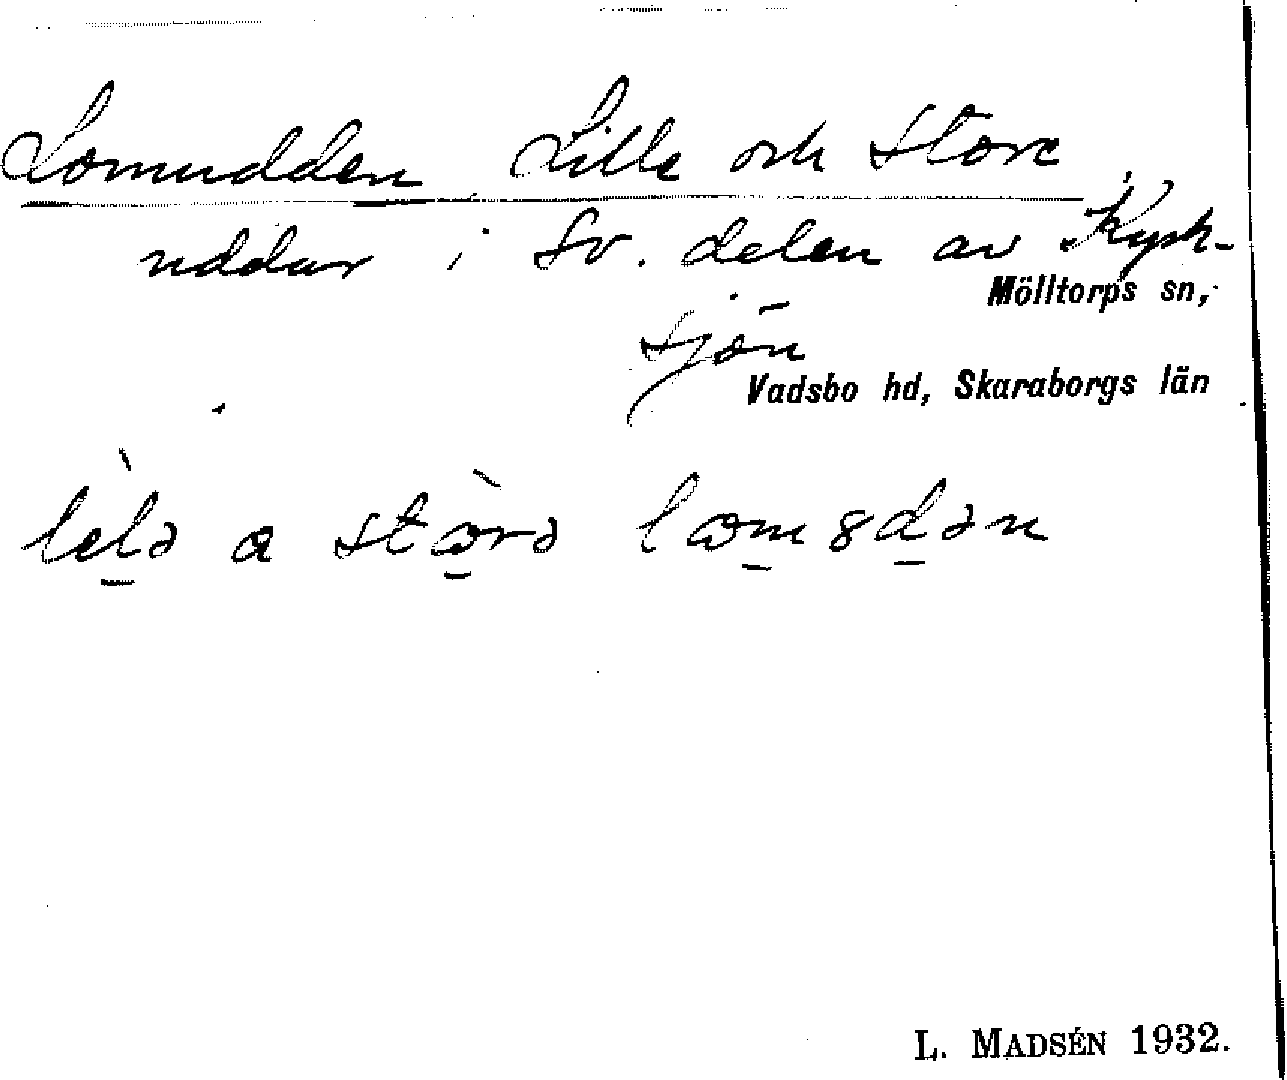 Lomudden, Lille och Store
uddar i Sv. delen av Kyrk-
Mölltorps sn,
sjön
Vadsbo hd, Skaraborgs län
a
L. MADSÉN 1932.